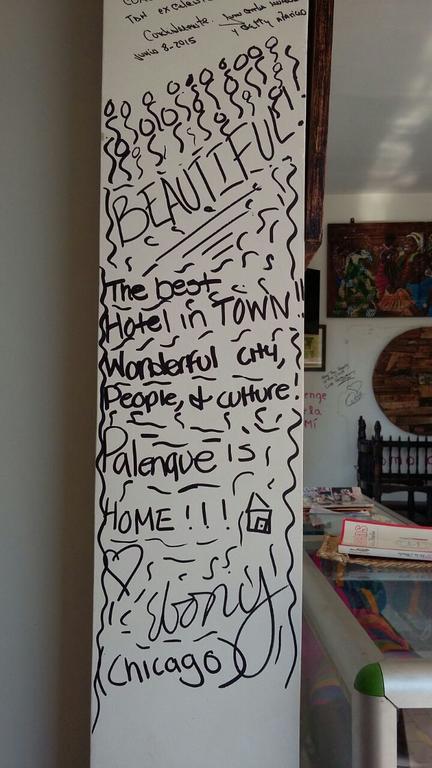 Tan
Cordialmente.
Junio 8-2015
BEAUTIFUL!!
The best
Hotel in TOWN!!
Wonderful city,
People, & culture!
Palenque is
HOME!!!
Ebony
Chicago
enge
la
Mí